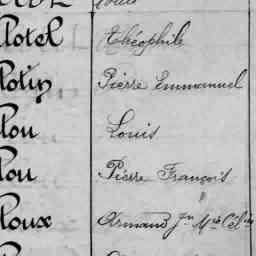 lotel Théophile
lotin Pierre Emmanuel
lou Louis
lou Pierre François
loux Armand Jn Mie Cél